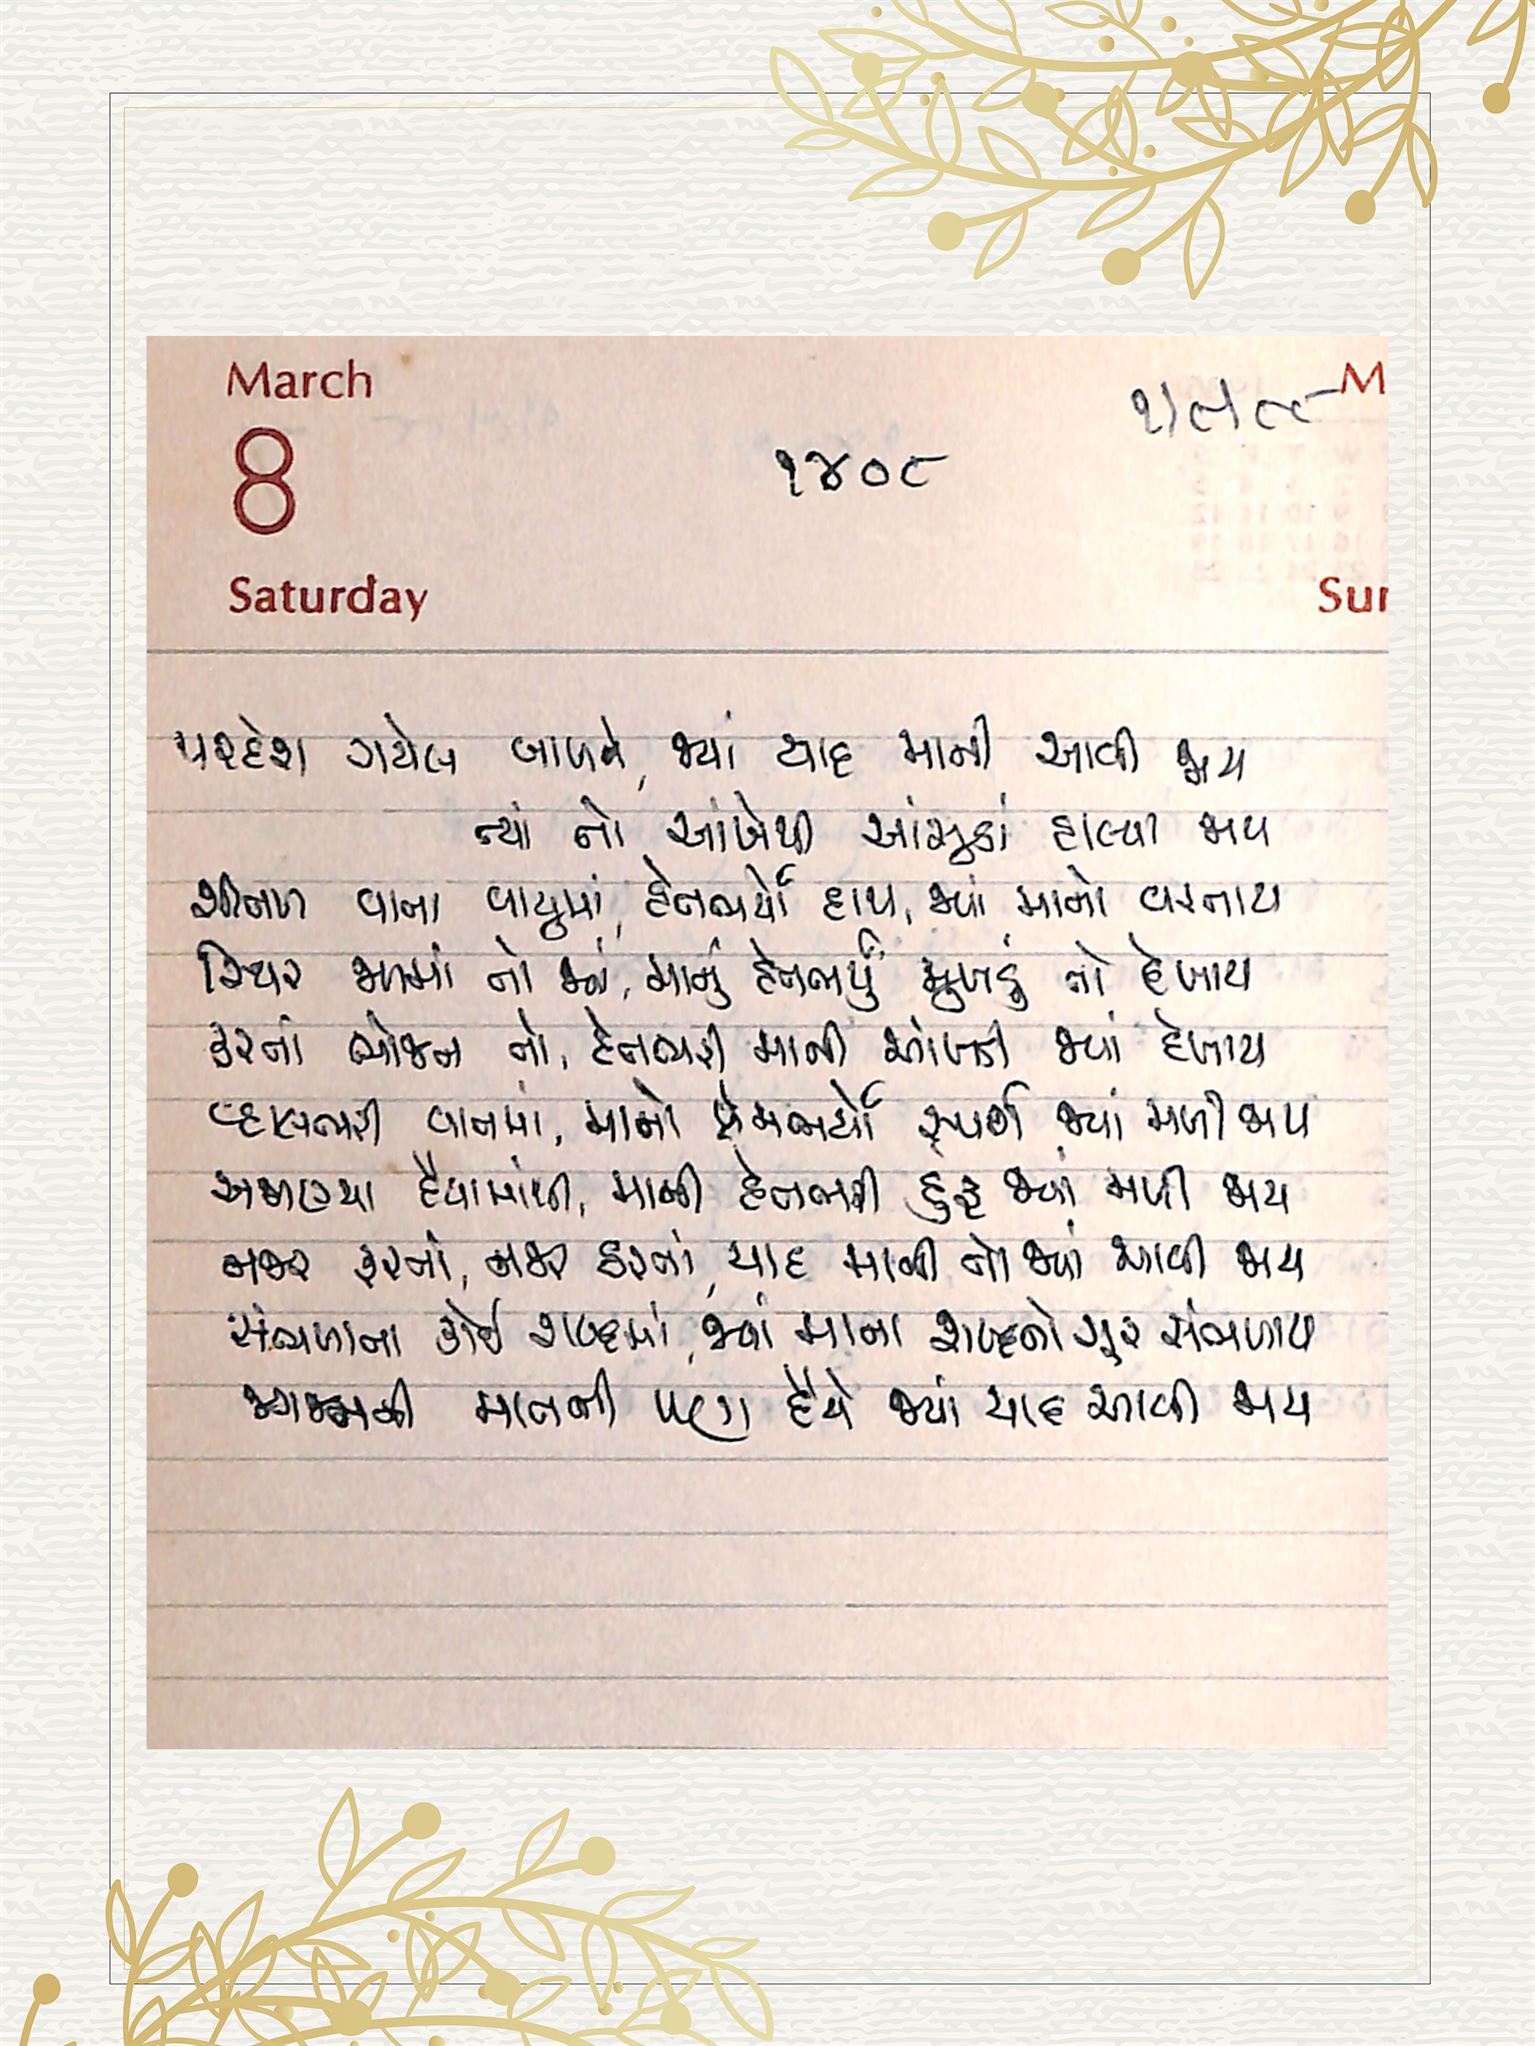 March
8
Saturday
૧૪૦૮
M
Sun
પરદેશ ગયેલ બાળને, જ્યાં યાદ માની આવી જાય
ત્યાં તો આંખેથી આંસુડાં હાલ્યા જાય
શીતળ વાતા વાયુમાં, હેતભર્યો હાથ, જ્યાં માનો વરતાય
સ્થિર જળમાં તો જ્યાં, માનું હેતભર્યું મુખડું તો દેખાય
કરતાં ભોજન તો, હેતભરી માની આંખડી જ્યાં દેખાય
વ્હાલભરી વાતમાં, માનો પ્રેમભર્યો સ્પર્શ જ્યાં મળી જાય
અજાણ્યા હૈયામાંથી, માની હેતભરી હુંફ જ્યાં મળી જાય
નજર ફરતાં, નજર કરતાં, યાદ માની તો જ્યાં આવી જાય
સંભળાતા કોઈ શબ્દમાં, જ્યાં માના શબ્દનો સૂર સંભળાય
જગજનની માતની પણ હૈયે જ્યાં યાદ આવી જાય